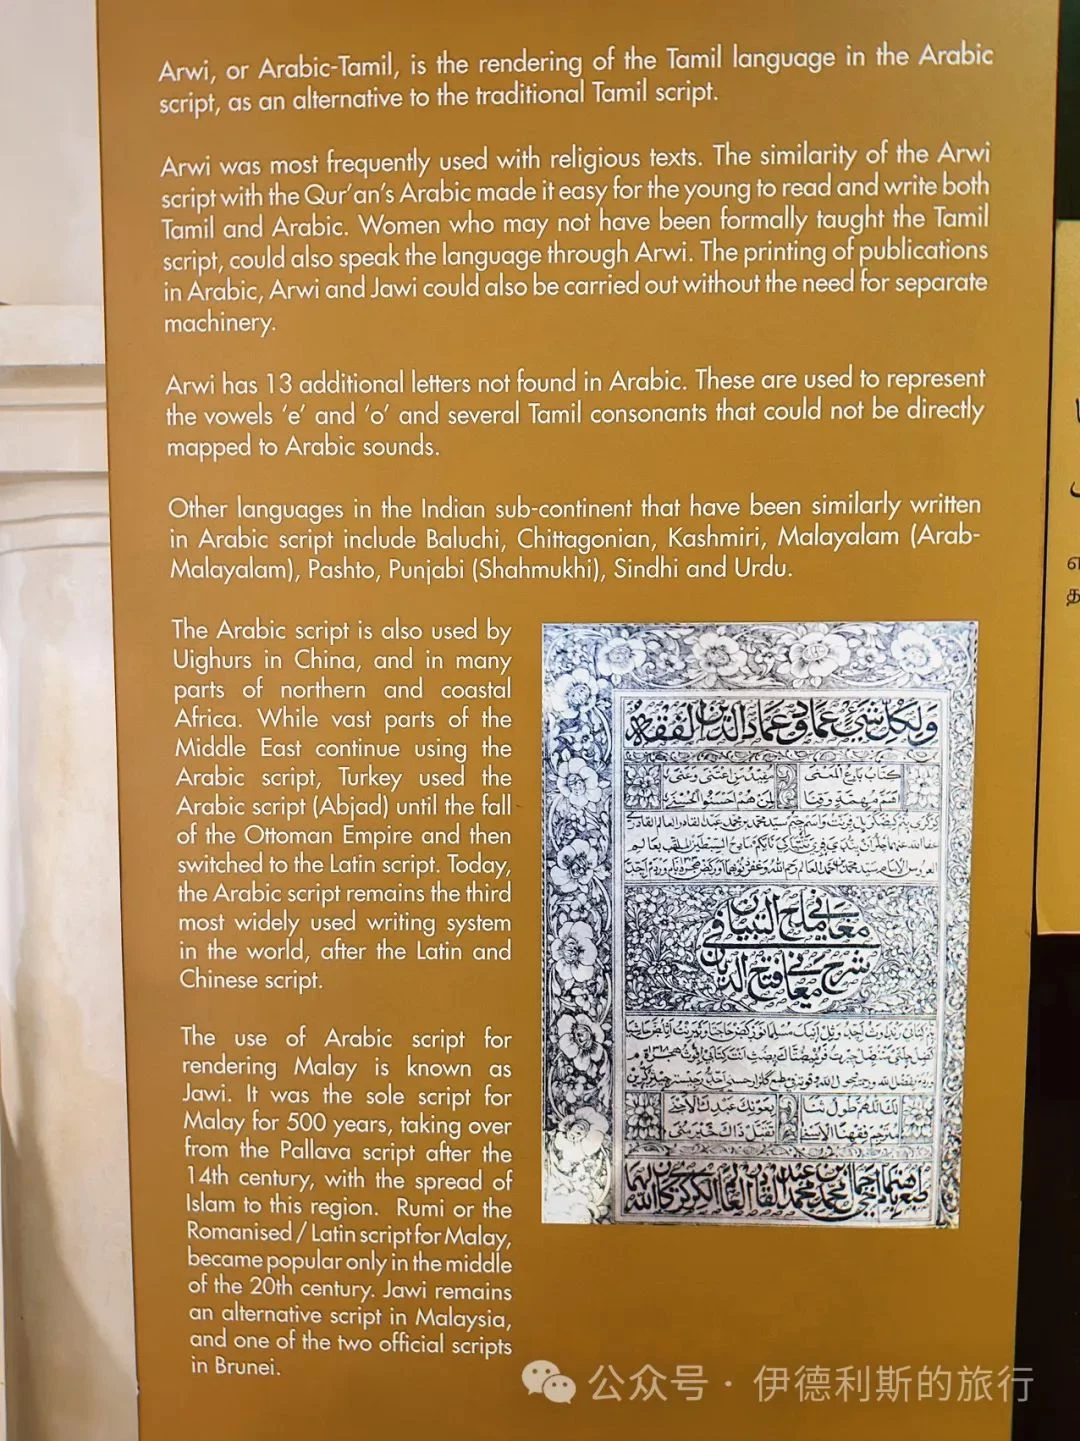 Arwi, or Arabic-Tamil, is the rendering of the Tamil language in the Arabic
script, as an alternative to the traditional Tamil script.
Arwi was most frequently used with religious texts. The similarity of the Arwi
script with the Qur'an's Arabic made it easy for the young to read and write both
Tamil and Arabic. Women who may not have been formally taught the Tamil
script, could also speak the language through Arwi. The printing of publications
in Arabic, Arwi and Jawi could also be carried out without the need for separate
machinery.
Arwi has 13 additional letters not found in Arabic. These are used to represent
the vowels 'e' and 'o' and several Tamil consonants that could not be directly
mapped to Arabic sounds.
Other languages in the Indian sub-continent that have been similarly written
in Arabic script include Baluchi, Chittagonian, Kashmiri, Malayalam (Arab-
Malayalam), Pashto, Punjabi (Shahmukhi), Sindhi and Urdu.
The Arabic script is also used by
Uighurs in China, and in many
parts of northern and coastal
Africa. While vast parts of the
Middle East continue using the
Arabic script, Turkey used the
Arabic script (Abjad) until the fall
of the Ottoman Empire and then
switched to the Latin script. Today,
the Arabic script remains the third
most widely used writing system
in the world, after the Latin and
Chinese script.
The use of Arabic script for
rendering Malay is known as
Jawi. It was the sole script for
Malay for 500 years, taking over
from the Pallava script after the
14th century, with the spread of
Islam to this region. Rumi or the
Romanised / Latin script for Malay,
became popular only in the middle
of the 20th century. Jawi remains
an alternative script in Malaysia,
and one of the two official scripts
in Brunei.
ولكل شيء عماد وعماد الدين الفقه
كتاب بارع المعنى
معاني ملح التبيان في
شرح معاني فتح الديان
公众号 · 伊德利斯的旅行